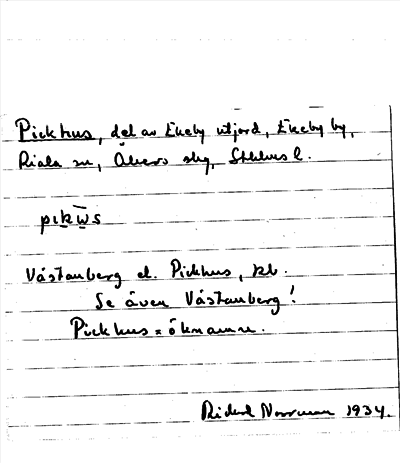 Pickhus, del av Ekeby utjord, Ekeby by,
Riala sn, Åkers skg, Sthlms l.
pıkw̅s
Västanberg el. Pickhus, bb.
Se även Västanberg!
Pickhus = öknamn.
Rickard Norrman 1934.